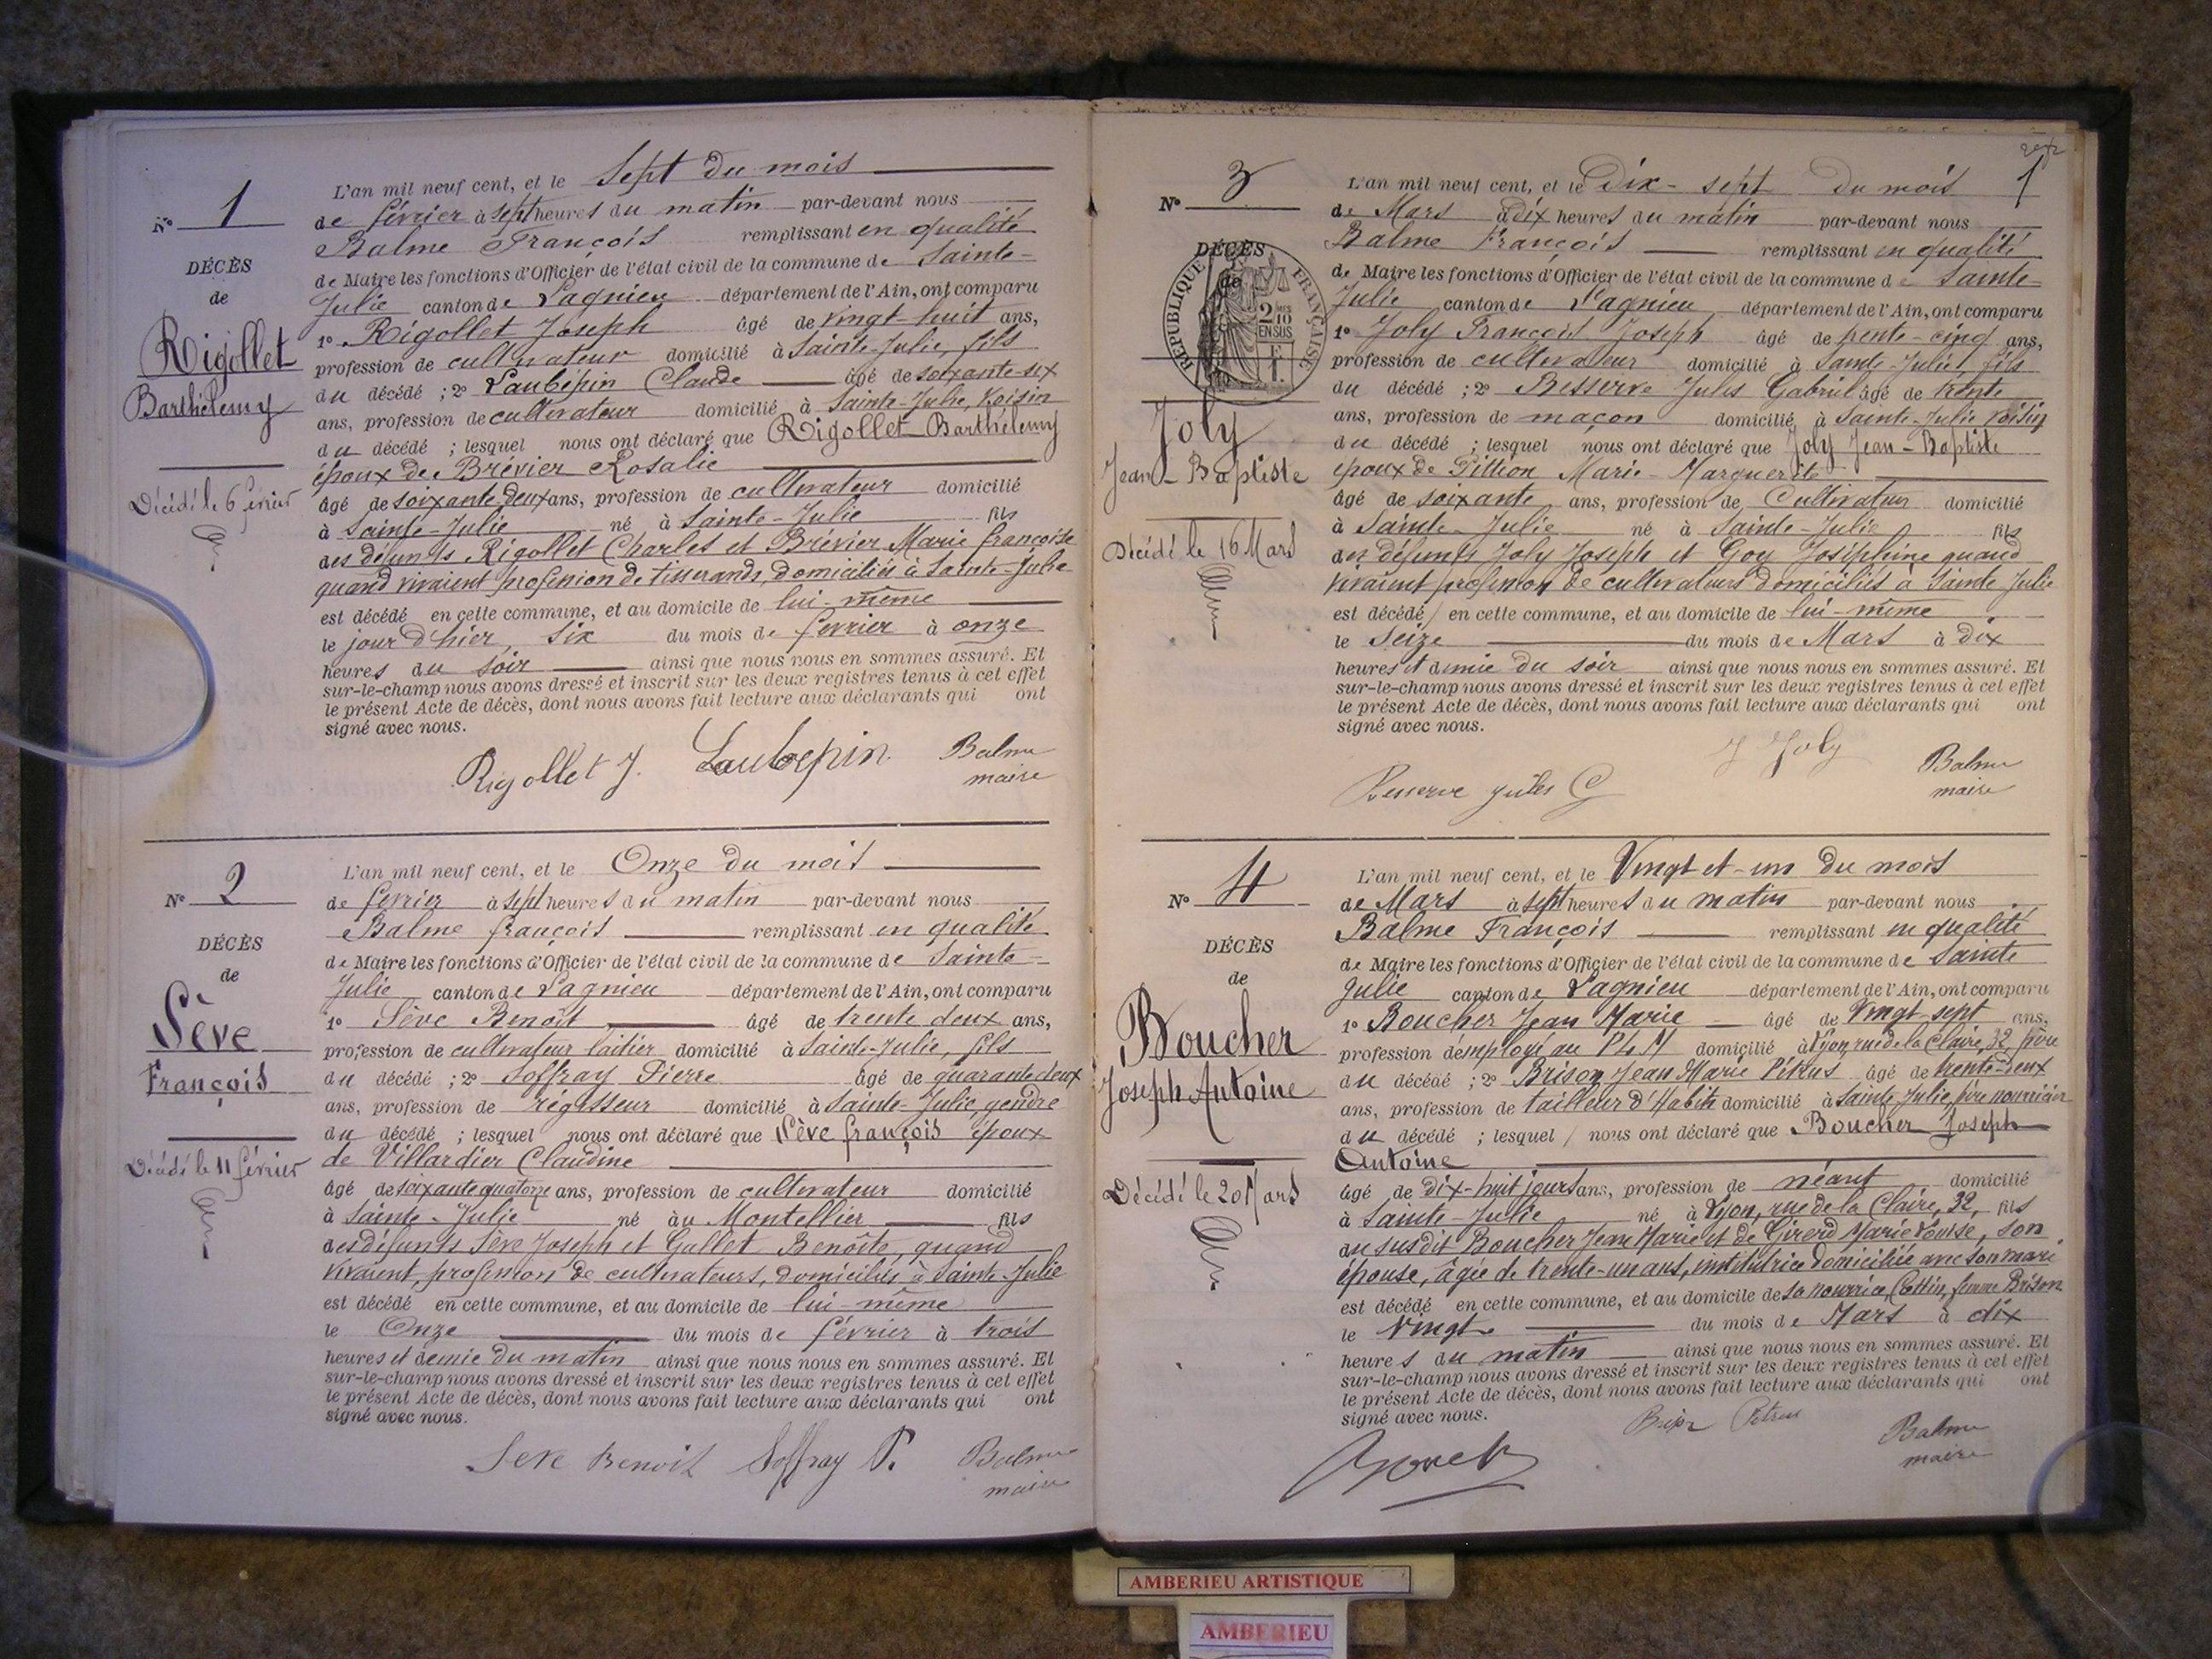 L'an mil neuf cent, et le Sept du mois
N° 1
de février à sept heures du matin par-devant nous
Balme François remplissant en qualité
DÉCÈS
de Maire les fonctions d'Officier de l'état civil de la commune de Sainte-
de
Julie canton de Lagnieu département de l'Ain, ont comparu
1° Rigollet Joseph âgé de vingt-huit ans,
Rigollet
profession de cultivateur domicilié à Sainte-Julie, fils
du décédé ; 2° Laubépin Claude âgé de soixante-six
Barthélemy
ans, profession de cultivateur domicilié à Sainte-Julie, voisin
du décédé ; lesquel nous ont déclaré que Rigollet Barthélemy
époux de Brévier Rosalie
Décédé le 6 février
âgé de soixante-deux ans, profession de cultivateur domicilié
à Sainte-Julie né à Sainte-Julie fils
des défunts Rigollet Charles et Brévier Marie Françoise
quand vivaient profession de tisserands, domiciliés à Sainte-Julie
est décédé en cette commune, et au domicile de lui-même
le jour d'hier, six du mois de février à onze
heures du soir ainsi que nous nous en sommes assuré. Et
sur-le-champ nous avons dressé et inscrit sur les deux registres tenus à cet effet
le présent Acte de décès, dont nous avons fait lecture aux déclarants qui ont
signé avec nous.
Rigollet J. Laubepin Balme
maire
L'an mil neuf cent, et le Onze du mois
N° 2
de février à sept heures du matin par-devant nous
Balme François remplissant en qualité
DÉCÈS
de Maire les fonctions d'Officier de l'état civil de la commune de Sainte-
de
Julie canton de Lagnieu département de l'Ain, ont comparu
1° Sève Benoît âgé de trente deux ans,
Sève
profession de cultivateur laitier domicilié à Sainte-Julie, fils
François
du décédé ; 2° Soffray Pierre âgé de quarante deux
ans, profession de régisseur domicilié à Sainte-Julie, gendre
du décédé ; lesquel nous ont déclaré que Sève François époux
de Villardier Claudine
Décédé le 11 février
âgé de soixante quatorze ans, profession de cultivateur domicilié
à Sainte-Julie né à au Montellier fils
des défunts Sève Joseph et Gallet Benoîte, quand
vivaient, profession de cultivateurs, domiciliés à Sainte-Julie
est décédé en cette commune, et au domicile de lui-même
le Onze du mois de février à trois
heures et demie du matin ainsi que nous nous en sommes assuré. Et
sur-le-champ nous avons dressé et inscrit sur les deux registres tenus à cet effet
le présent Acte de décès, dont nous avons fait lecture aux déclarants qui ont
signé avec nous.
Seve Benoit Soffray P. Balme
maire
1
L'an mil neuf cent, et le Dix-sept du mois
N° 3
de Mars à dix heures du matin par-devant nous
Balme François remplissant en qualité
DÉCÈS
de
RÉPUBLIQUE FRANÇAISE
2/10 MES
EN SUS
de Maire les fonctions d'Officier de l'état civil de la commune de Sainte-
Julie canton de Lagnieu département de l'Ain, ont comparu
1° Joly François Joseph âgé de trente-cinq ans,
profession de cultivateur domicilié à Sainte-Julie, fils
du décédé ; 2° Besserve Jules Gabriel âgé de trente
Joly
ans, profession de maçon domicilié à Sainte-Julie voisin
du décédé ; lesquel nous ont déclaré que Joly Jean-Baptiste
Jean-Baptiste
époux de Pittion Marie-Marguerite
âgé de soixante ans, profession de Cultivateur domicilié
à Sainte-Julie né à Sainte-Julie fils
Décédé le 16 Mars
des défunts Joly Joseph et Goy Joséphine quand
vivaient profession de cultivateurs domiciliés à Sainte Julie
est décédé en cette commune, et au domicile de lui-même
le Seize du mois de Mars à dix
heures et demie du soir ainsi que nous nous en sommes assuré. Et
sur-le-champ nous avons dressé et inscrit sur les deux registres tenus à cet effet
le présent Acte de décès, dont nous avons fait lecture aux déclarants qui ont
signé avec nous.
J Joly
Besserve jules G Balme
maire
L'an mil neuf cent, et le Vingt et-un du mois
N° 4
de Mars à sept heures du matin par-devant nous
Balme François remplissant en qualité
DÉCÈS
de Maire les fonctions d'Officier de l'état civil de la commune de Sainte
de
Julie canton de Lagnieu département de l'Ain, ont comparu
1° Boucher Jean Marie âgé de Vingt-sept ans,
Boucher
profession d'employé au PLM domicilié à Lyon, rue de la Claire, 32 père
Joseph Antoine
du décédé ; 2° Brison Jean Marie Pétrus âgé de trente-deux
ans, profession de tailleur d'Habits domicilié à Sainte Julie, père nourricier
du décédé ; lesquel nous ont déclaré que Boucher Joseph
Antoine
Décédé le 20 Mars
âgé de dix-huit jours ans, profession de néant domicilié
à Sainte-Julie né à Lyon, rue de la Claire, 32, fils
du susdit Boucher Jean Marie et de Girerd Marie Louise, son
épouse, âgée de trente-un ans, institutrice domiciliée avec son mari
est décédé en cette commune, et au domicile de sa nourrice, Cottin, femme Brison
le Vingt du mois de Mars à dix
heures du matin ainsi que nous nous en sommes assuré. Et
sur-le-champ nous avons dressé et inscrit sur les deux registres tenus à cet effet
le présent Acte de décès, dont nous avons fait lecture aux déclarants qui ont
signé avec nous.
Balme
maire
AMBERIEU ARTISTIQUE
AMBERIEU